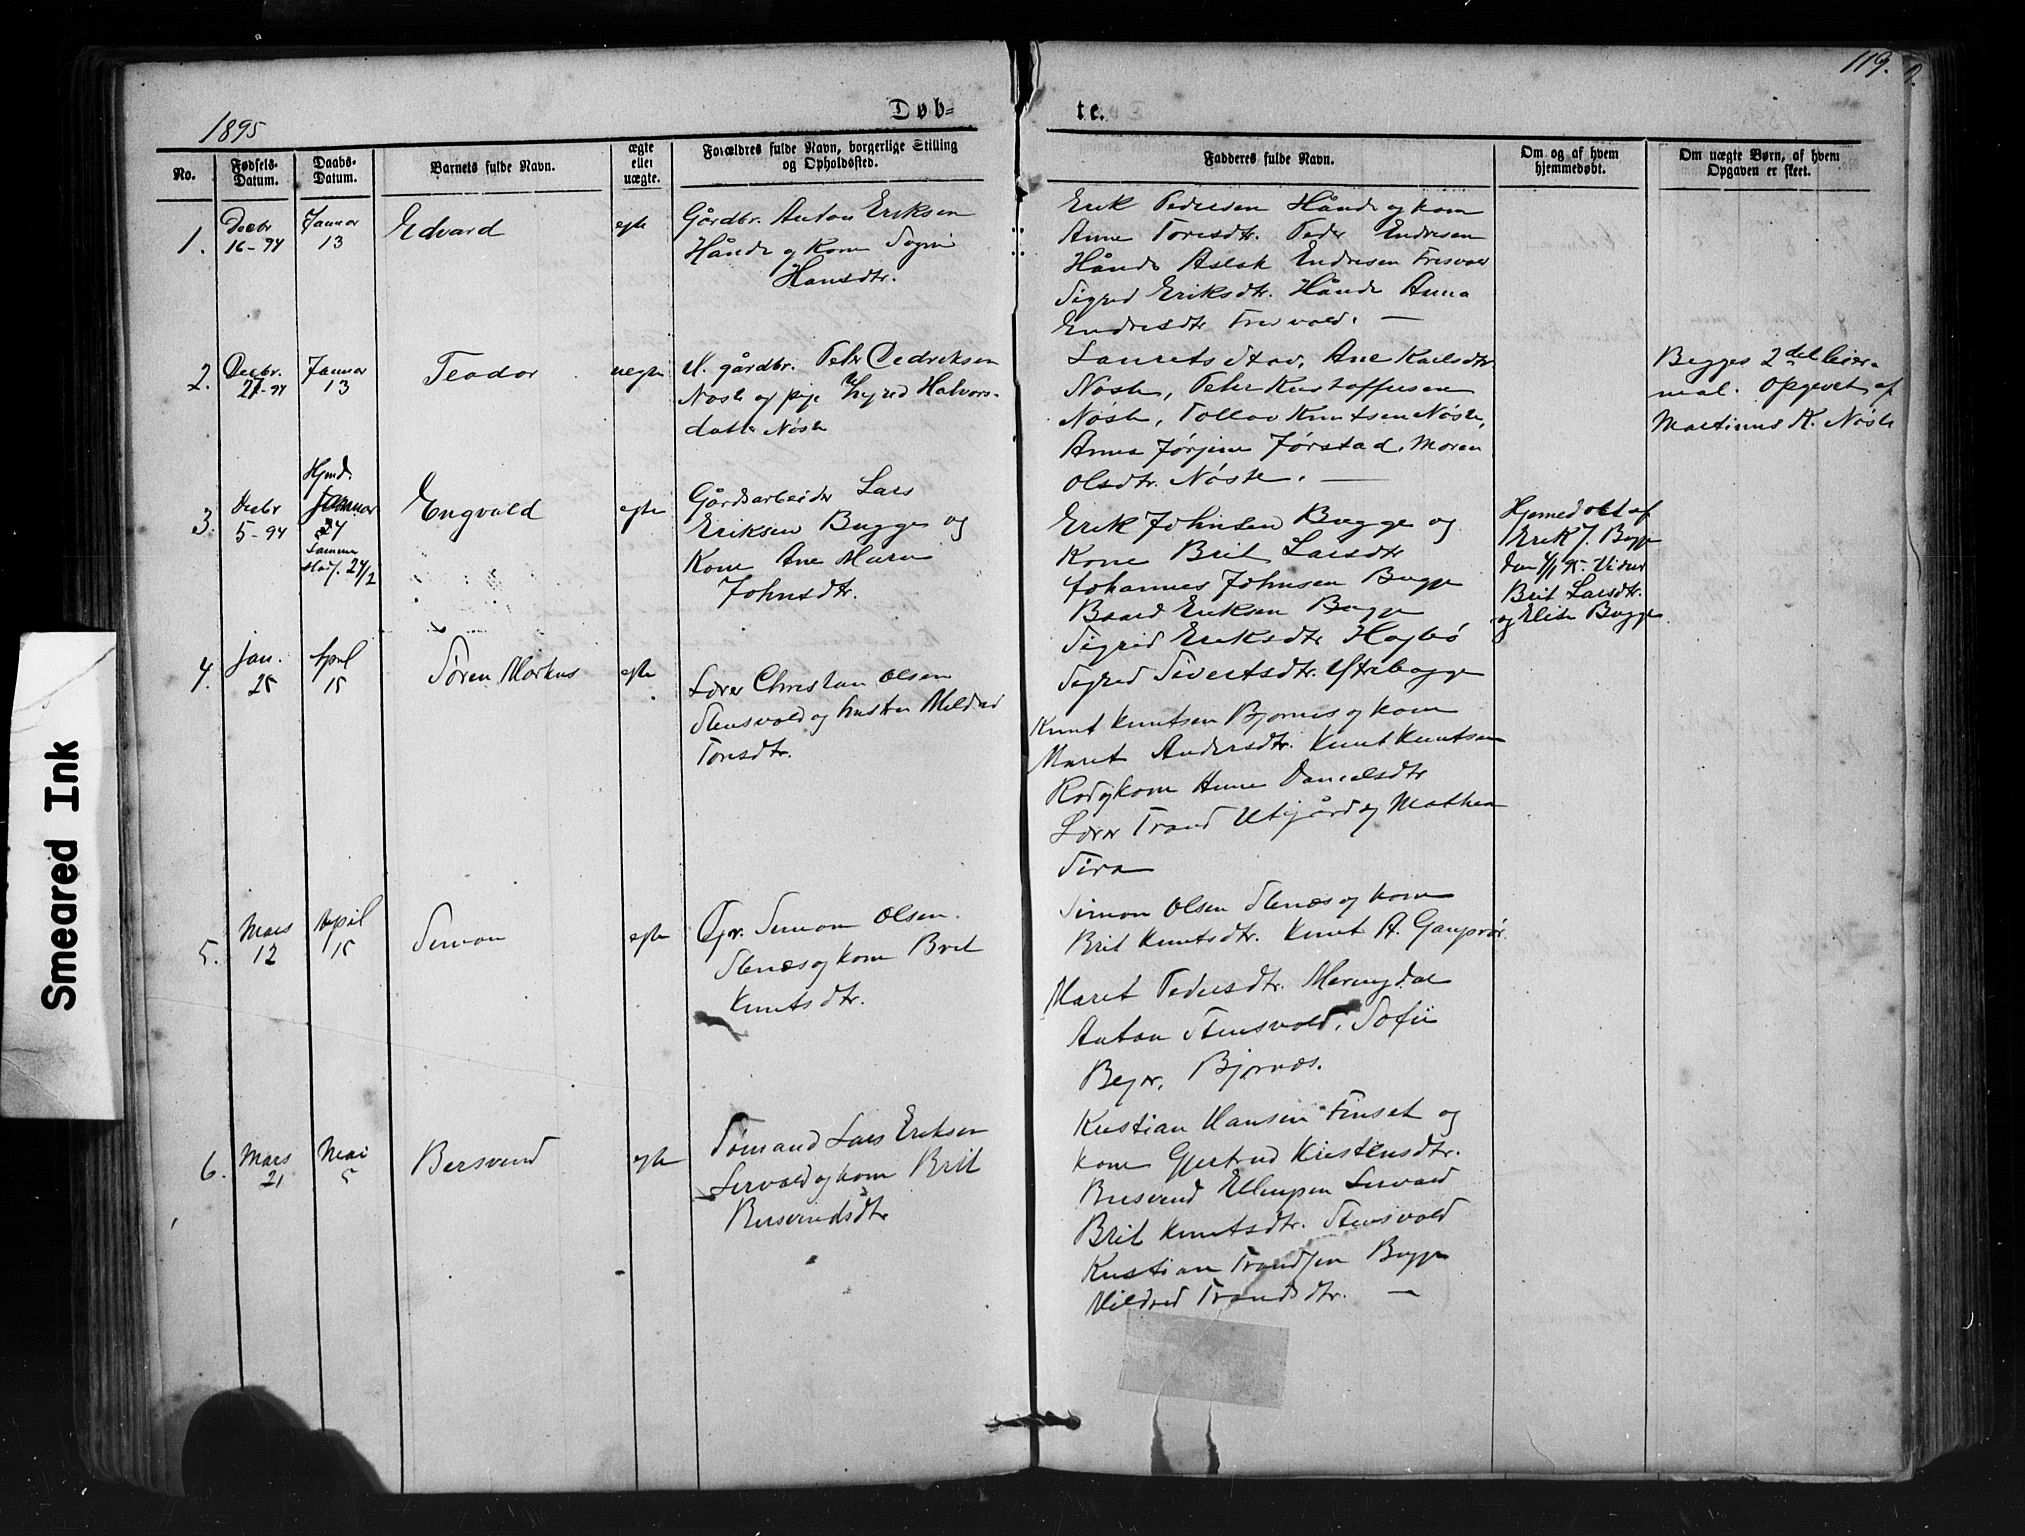 119.
1895
Døb=
te.
No.
Fødsels-Datum.
Daabs-Datum.
Barnets fulde Navn.
ægte eller uægte.
Forældres fulde Navn, borgerlige Stilling og Opholdssted.
Fadderes fulde Navn.
Om og af hvem hjemmedøbt.
Om uægte Børn, af hvem Opgaven er skeet.
1.
Decbr
16-94
Januar
13
Edvard
egte
Gårdbr. Anton Eriksen
Hånde og Kone
Hansdtr.
Erik Pedersen Hånde og kone
Anne Toresdtr. Peder Endresen
Hånde Aslak Endresen
Sigrid Eriksdtr. Hånde Anna
Endresdtr
2.
Decbr.
27-94
Januar
13
Teodor
uegte
U. gårdbr. Peter
Nøste og pige Halvors-
datter Nøste
Ane Karlsdtr.
Nøste, Peter
Nøste, Tollev Knutsen Nøste,
Anna Jørgine Jørstad, Maren
Olsdtr. Nøste.
Begges 2det leier-
mal. Opgevet af
Martinus K. Nøste
3.
Decbr
5-94
Hjmd.
Januar
24/2
Engvald
egte
Gårdsarbeider Lars
Eriksen Bugge og
Kone Ane Marie
Johnsdtr.
Erik Johnsen Bugge og
Kone Brit Larsdtr
Johannes Johnsen Bugge
Baard Eriksen Bugge
Sigrid Eriksdtr
Sigrid Sivertsdtr. Ytrebugge
Hjemedøbt af
Erik J. Bugge
den
Brit Larsdtr.
og Elise Bugge.
4.
Jan.
25
April
15
Søren Markus
egte
Lærer Christian Olsen
Stensvold og hustru Mildrid
Toresdtr.
Knut Knutsen Bjørnes og kone
Maret Andersdtr. Knut Knutsen
Rød og kone Anne Danielsdtr
Lærer Trond Utigård og Mathea
Sira
5.
Mars
12
April
15
Simon
egte
Gbr. Simon Olsen.
Stenæs og kone Brit
Knutsdtr.
Simon Olsen Stenæs og kone
Brit Knutsdtr. Knut A. Gauprør
Maret Pedersdtr. Meringdal
Anton Stensvold, Sofie
Beyer, Bjørnæs.
6.
Mars
21
Mai
5
Bersvend
egte
Tømand Lars Eriksen
Sirvold og kone Brit
Bersvendsdtr
Kristian Hansen Finset og
kone Gjertrud Kristensdtr.
Bersvend Ellingsen Sirvold
Brit Knutsdtr. Stensvold
Kristian Trondsen Bugge
Mildrid Trondsdtr.
Smeared Ink